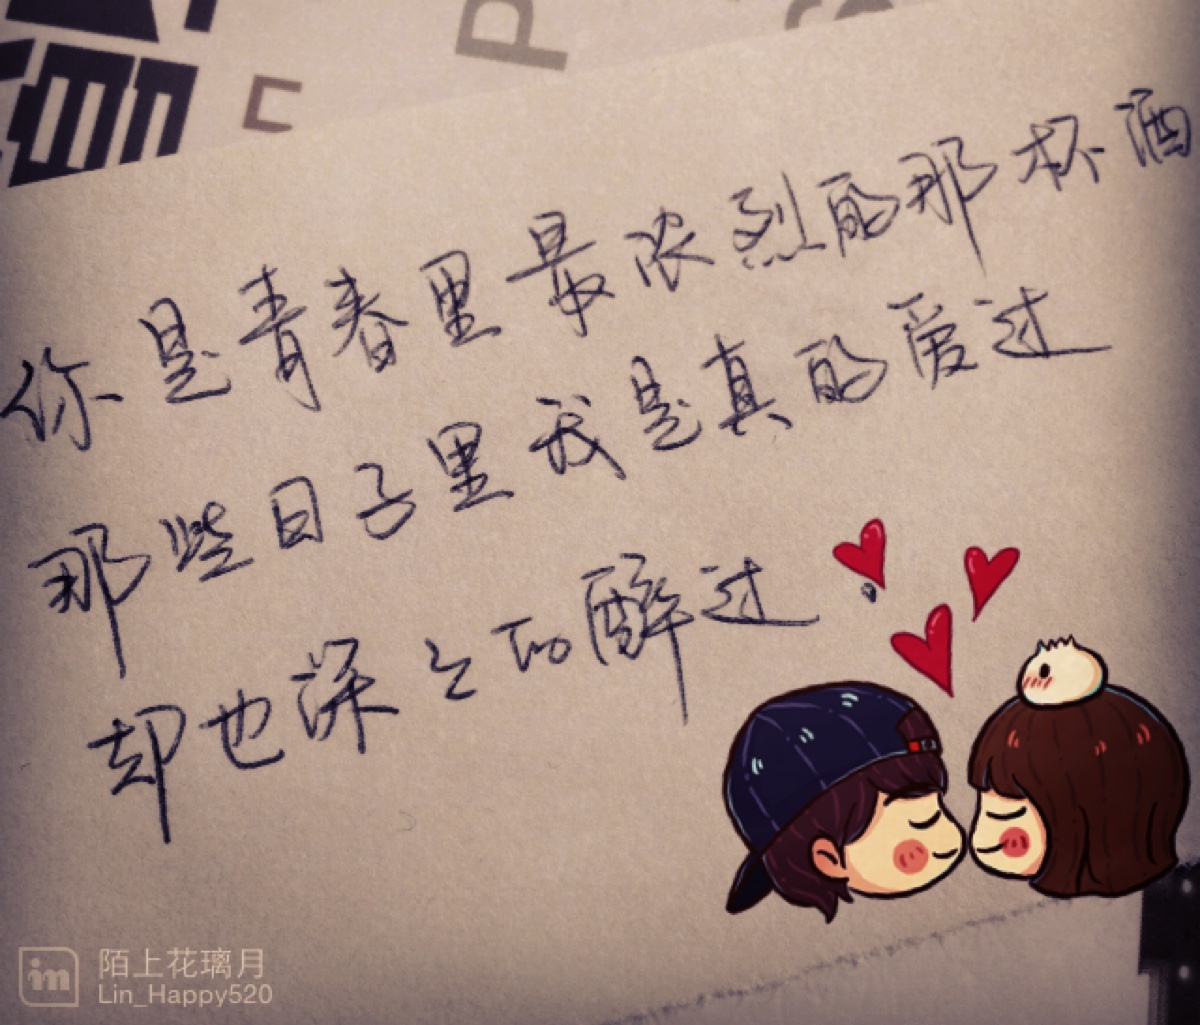 你是青春里最浓烈的那杯酒
那些日子里我是真的爱过
却也深深切切醉过.
陌上花璃月
Lin_Happy520